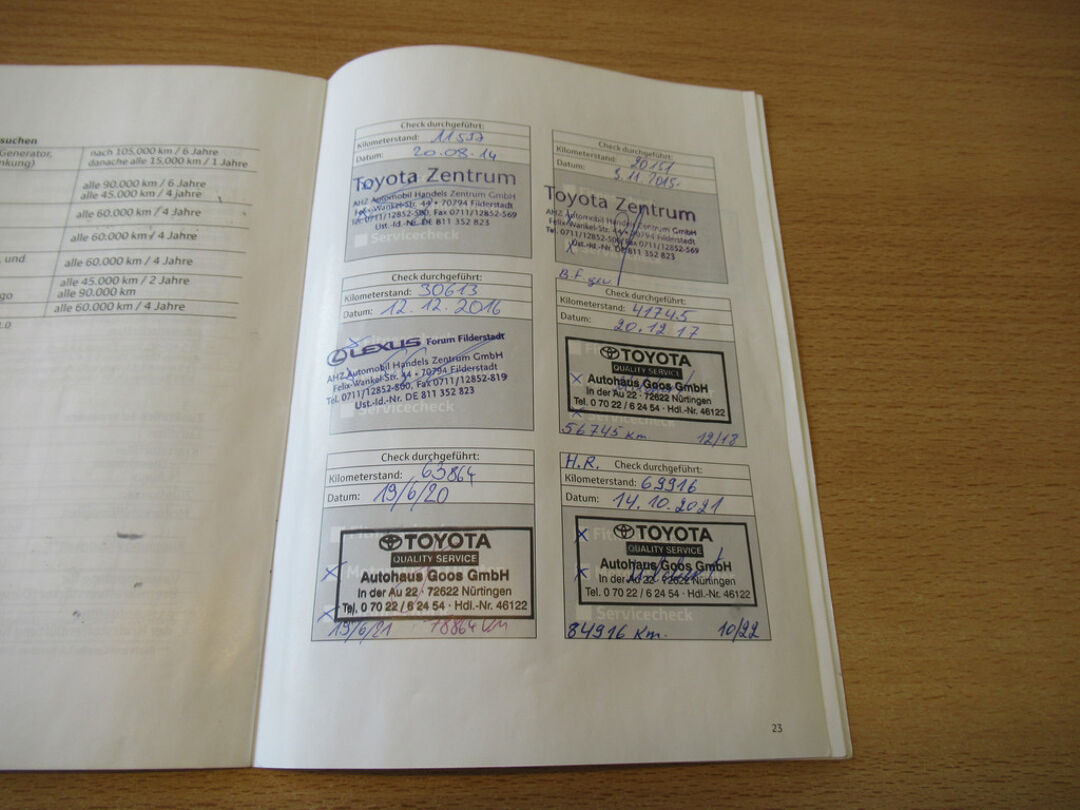 suchen
Generator,
nkung)
nach 105.000 km / 6 Jahre
danache alle 15.000 km / 1 Jahre
alle 90.000 km / 6 Jahre
alle 45.000 km / 4 jahre
alle 60.000 km / 4 Jahre
alle 60.000 km / 4 Jahre
, und
alle 60.000 km / 4 Jahre
go
alle 45.000 km / 2 Jahre
alle 90.000 km
alle 60.000 km / 4 Jahre
Check durchgeführt:
Kilometerstand: 11537
Datum: 20.08.14
Toyota Zentrum
AHZ Automobil Handels Zentrum GmbH
Felix-Wankel-Str. 44 • 70794 Filderstadt
Tel. 0711/12852-500, Fax 0711/12852-569
Ust.-Id.-Nr. DE 811 352 823
Servicecheck
Check durchgeführt:
Kilometerstand: 20151
Datum: 3.11.2015
Toyota Zentrum
AHZ Automobil Handels Zentrum GmbH
Felix-Wankel-Str. 44 • 70794 Filderstadt
Tel. 0711/12852-500, Fax 0711/12852-569
Ust.-Id.-Nr. DE 811 352 823
B.F.
Check durchgeführt:
Kilometerstand: 30613
Datum: 12.12.2016
LEXUS Forum Filderstadt
AHZ Automobil Handels Zentrum GmbH
Felix-Wankel-Str. 44 • 70794 Filderstadt
Tel. 0711/12852-800, Fax 0711/12852-819
Ust.-Id.-Nr. DE 811 352 823
Servicecheck
Check durchgeführt:
Kilometerstand: 41745
Datum: 20.12.17
TOYOTA
QUALITY SERVICE
Autohaus Goos GmbH
In der Au 22 · 72622 Nürtingen
Tel. 0 70 22 / 6 24 54 · Hdl.-Nr. 46122
56745 km. 12/18
Check durchgeführt:
Kilometerstand: 63864
Datum: 19/6/20
TOYOTA
QUALITY SERVICE
Autohaus Goos GmbH
In der Au 22 · 72622 Nürtingen
Tel. 0 70 22 / 6 24 54 · Hdl.-Nr. 46122
19/6/21 78864 km
H.R. Check durchgeführt:
Kilometerstand: 69916
Datum: 14.10.2021
TOYOTA
QUALITY SERVICE
Autohaus Goos GmbH
In der Au 22 · 72622 Nürtingen
Tel. 0 70 22 / 6 24 54 · Hdl.-Nr. 46122
Servicecheck
84916 Km. 10/22
23